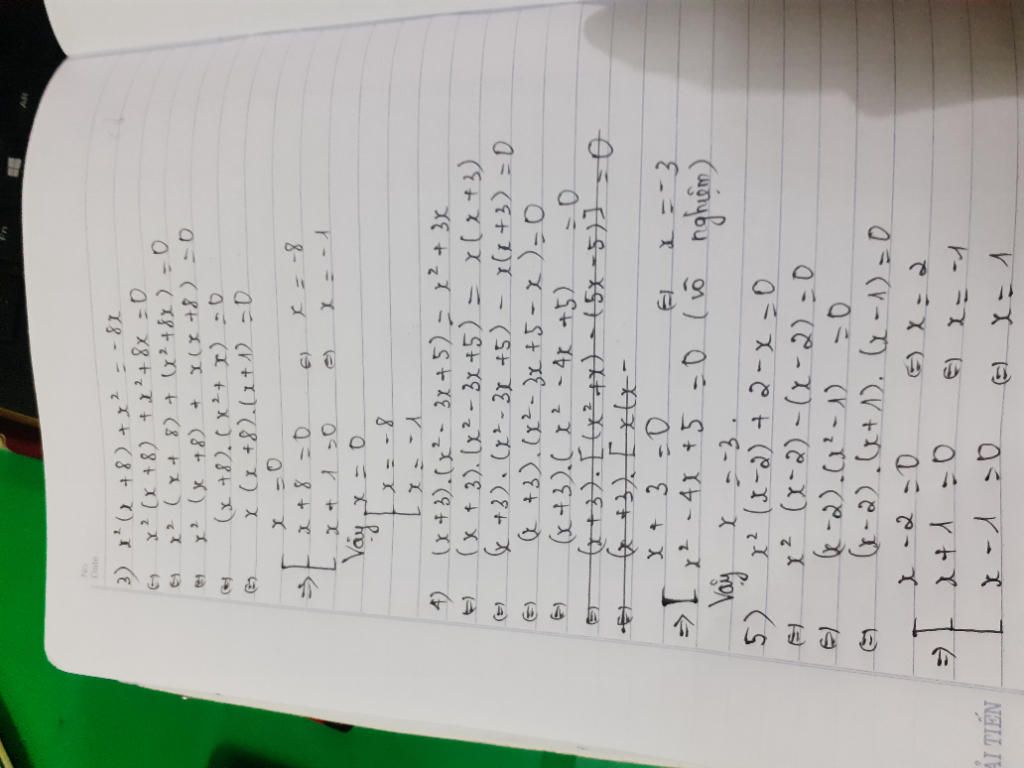 No.
Date
3) x²(x+8) + x² = -8x
⇔ x²(x+8) + x² + 8x = 0
⇔ x²(x+8) + (x²+8x) = 0
⇔ x²(x+8) + x(x+8) = 0
⇔ (x+8).(x²+x) = 0
⇔ x(x+8).(x+1) = 0
x = 0
⇒ [ x+8 = 0 ⇔ x = -8
x+1 = 0 ⇔ x = -1
Vậy [ x = 0
x = -8
x = -1
4) (x+3).(x²-3x+5) = x²+3x
⇔ (x+3).(x²-3x+5) = x(x+3)
⇔ (x+3).(x²-3x+5) - x(x+3) = 0
⇔ (x+3).(x²-3x+5-x) = 0
⇔ (x+3).(x²-4x+5) = 0
⇔ (x+3).[(x²+x)-(5x-5)] = 0
⇔ (x+3).[x(x-
x+3 = 0 ⇔ x = -3
⇒ [ x²-4x+5 = 0 (vô nghiệm)
Vậy x = -3.
5) x²(x-2) + 2 - x = 0
⇔ x²(x-2) - (x-2) = 0
⇔ (x-2).(x²-1) = 0
⇔ (x-2).(x+1).(x-1) = 0
x-2 = 0 ⇔ x = 2
⇒ [ x+1 = 0 ⇔ x = -1
x-1 = 0 ⇔ x = 1
ẢI TIẾN
Fn
Alt